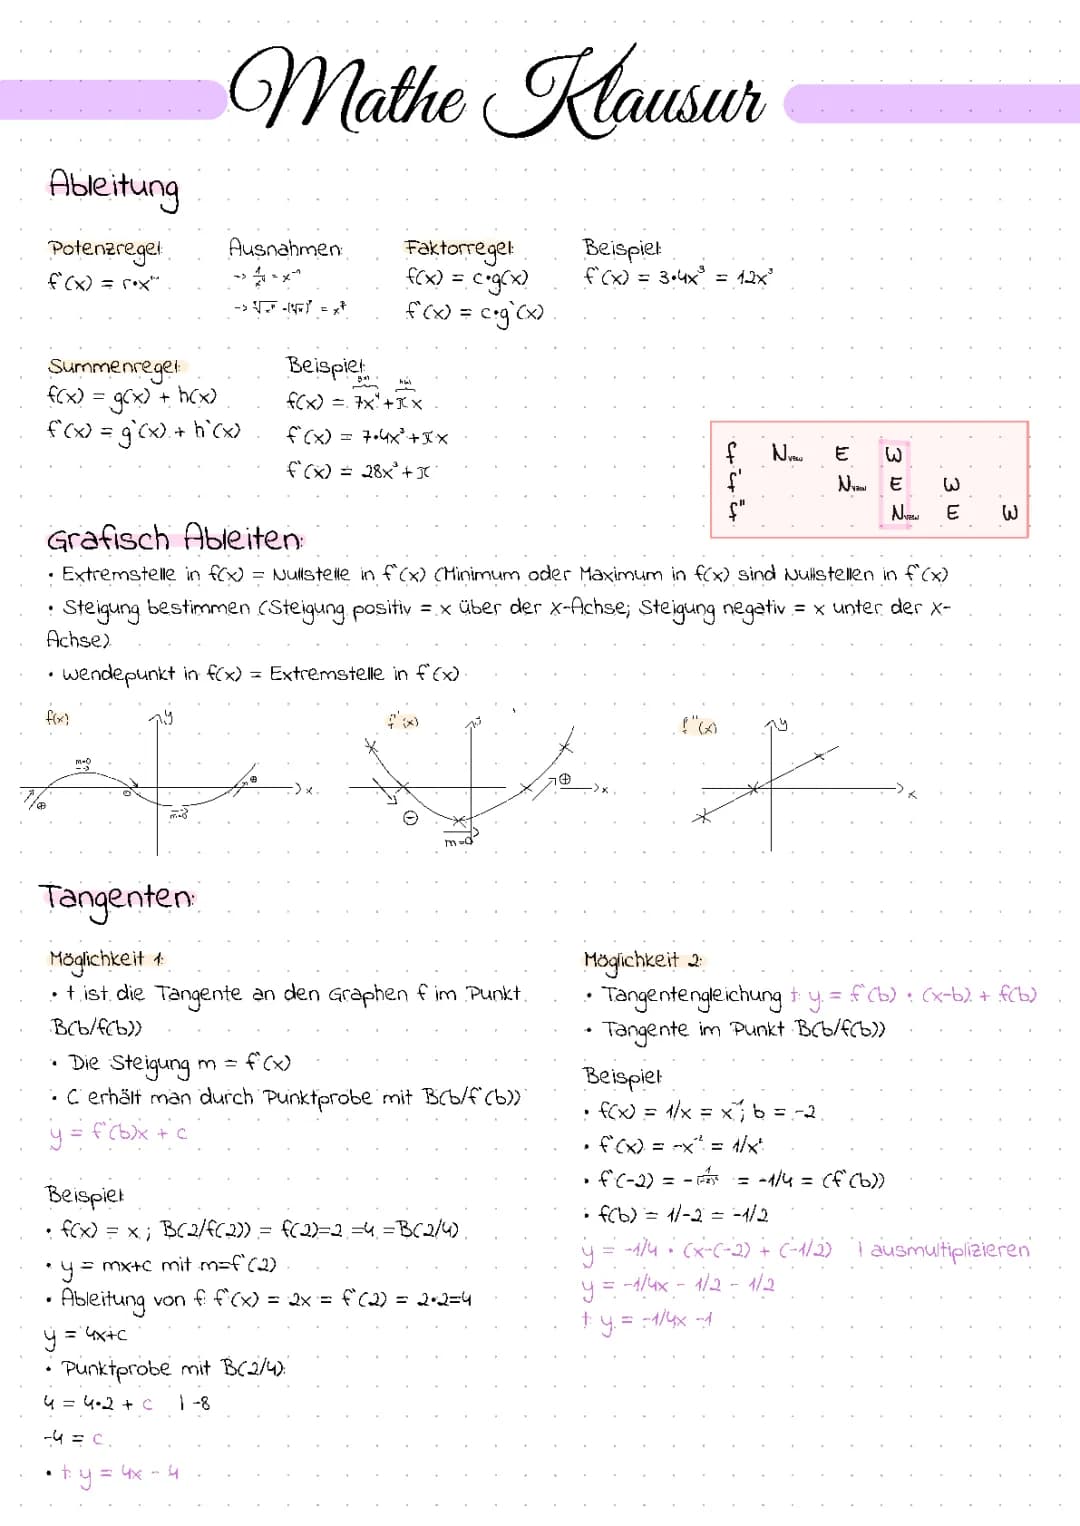 Mathe Klausur
Ableitung
Potenzregel: Ausnahmen: Faktorregel: Beispiel:
f(x) = c•g(x) f'(x) = 3•4x³ = 12x³
f'(x) = c•g'(x)
Summenregel: Beispiel:
f(x) = g(x) + h(x)
f'(x) = g'(x) + h'(x)
f(x) = 7x⁴ + πx
f'(x) = 7•4x³ + πx
f'(x) = 28x³ + π
f N E W
f' N E W
f'' N E W
Grafisch Ableiten:
• Extremstelle in f(x) = Nullstelle in f'(x) (Minimum oder Maximum in f(x) sind Nullstellen in f'(x)
• Steigung bestimmen (Steigung positiv = x über der x-Achse; Steigung negativ = x unter der x-
Achse)
• wendepunkt in f(x) = Extremstelle in f'(x)
f(x) y f'(x) f''(x) y
m=0
x x x
m=0
Tangenten:
Möglichkeit 1:
• t ist die Tangente an den Graphen f im Punkt
B(b/f(b))
• Die Steigung m = f'(x)
• C erhält man durch Punktprobe mit B(b/f'(b))
y = f'(b)x + c
Beispiel:
• f(x) = x; B(2/f(2)) = f(2)=2 =4 =B(2/4)
• y = mx+c mit m=f'(2)
• Ableitung von f: f'(x) = 2x = f'(2) = 2•2=4
y = 4x+c
• Punktprobe mit B(2/4):
4 = 4•2 + c | -8
-4 = c
• t: y = 4x - 4
Möglichkeit 2:
• Tangentengleichung t: y = f'(b) • (x-b) + f(b)
• Tangente im Punkt B(b/f(b))
Beispiel:
• f(x) = 1/x = x⁻¹; b = -2
• f'(x) = -x⁻² = 1/x²
• f'(-2) = = -1/4 = (f'(b))
• f(b) = 1/-2 = -1/2
y = -1/4 • (x-(-2) + (-1/2) | ausmultiplizieren
y = -1/4x - 1/2 - 1/2
t: y = -1/4x -1